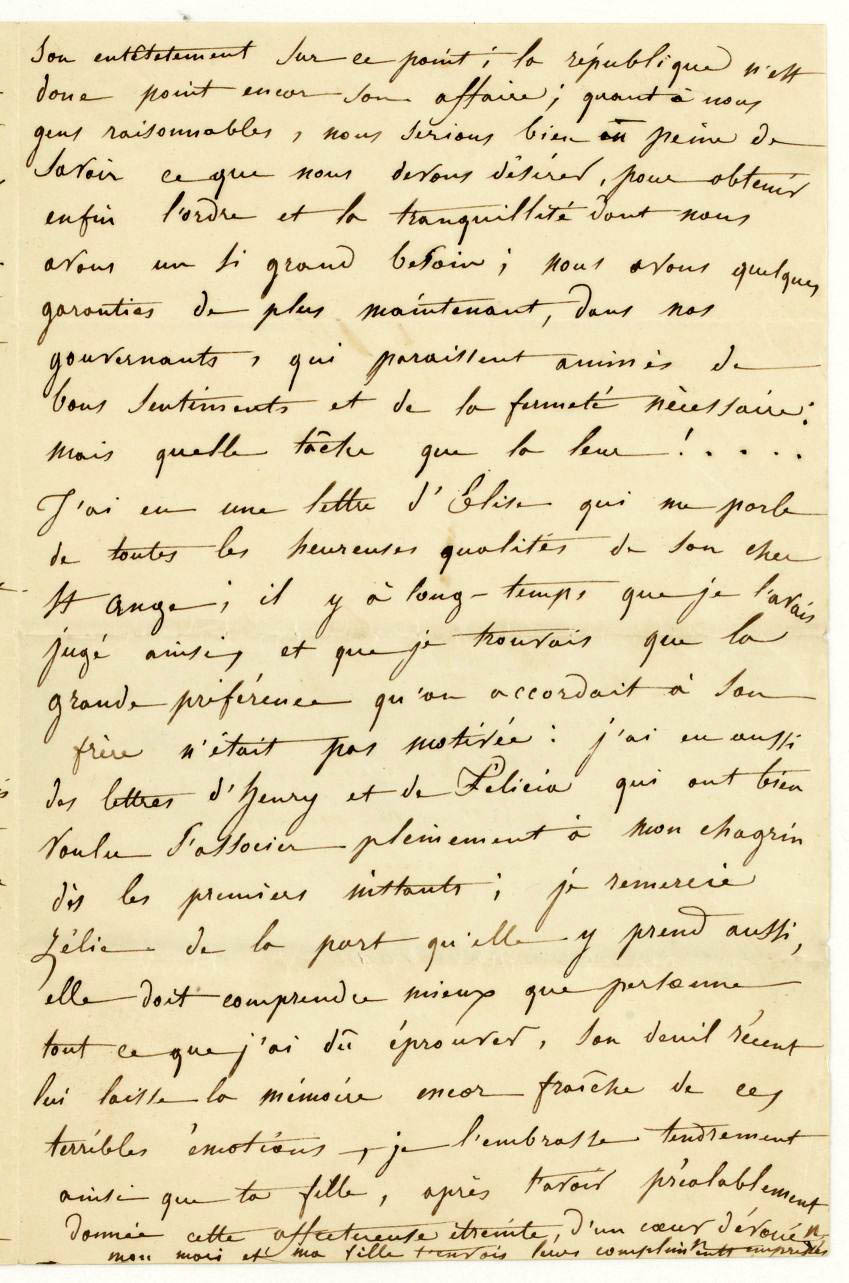 son entêtetement sur ce point ; la république n'est
donc point encor son affaire ; quant à nous
gens raisonnables, nous serions bien en peine de
savoir ce que nous devons désirer, pour obtenir
enfin l'ordre et la tranquillité dont nous
avons un si grand besoin ; nous avons quelques
garanties de plus maintenant, dans nos
gouvernants, qui paraissent animés de
bons sentiments et de la fermeté nècessaire :
mais quelle tâche que la leur ! . . . . .
J'ai eu une lettre d'Elise qui me parle
de toutes les heureuses qualités de son cher
St Ange ; il y à long-temps que je l'avais
jugé ainsi, et que je trouvais que la
grande préférence qu'on accordait à son
frère n'était pas motivée : j'ai eu aussi
des lettres d'henry et de Félicia qui ont bien
voulu s'associer pleinement à mon chagrin
dès les premiers instants ; je remercie
Zélie de la part qu'elle y prend aussi,
elle doit comprendre mieux que personne
tout ce que j'ai dû éprouver, son deuil récent
lui laisse la mémoire encor fraîche de ces
terribles émotions, je l'embrasse tendrement
ainsi que ta fille, après t'avoir préalablement
donnée cette affectueuse étreinte, d'un cœur dévoué
mon mari et ma fille t'envois leurs compliments empressés